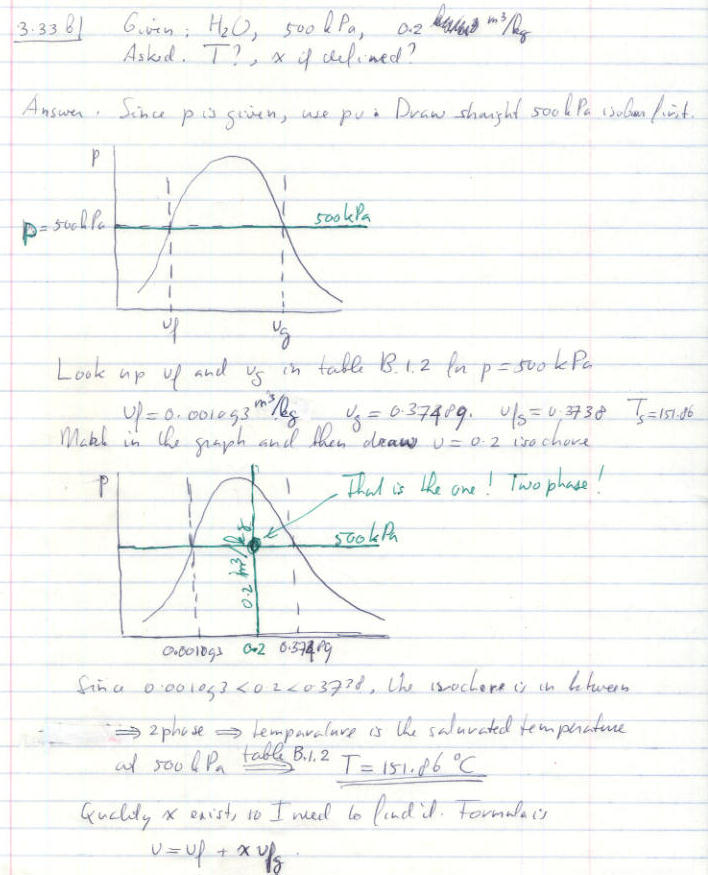 3.33 b) Given: H₂O, 500 kPa, 0.2 m³/kg
Asked. T?, x if defined?
Answer. Since p is given, use pv: Draw straight 500 kPa isobar first.
p
p = 500 kPa
500 kPa
vf vg
Look up vf and vg in table B.1.2 for p = 500 kPa
vf = 0.001093 m³/kg vg = 0.37489. vfg = 0.3738 Ts = 151.86
Mark in the graph and then draw v = 0.2 isochore
p
That is the one! Two phase!
500 kPa
0.2 m³/kg
0.001093 0.2 0.37489
Since 0.001093 < 0.2 < 0.3738, the isochore is in between
⇒ 2 phase ⇒ temparature is the saturated temperature
at 500 kPa table B.1.2 ⇒ T = 151.86 °C
Quality x exists, so I need to find it. Formula is
v = vf + x vfg.